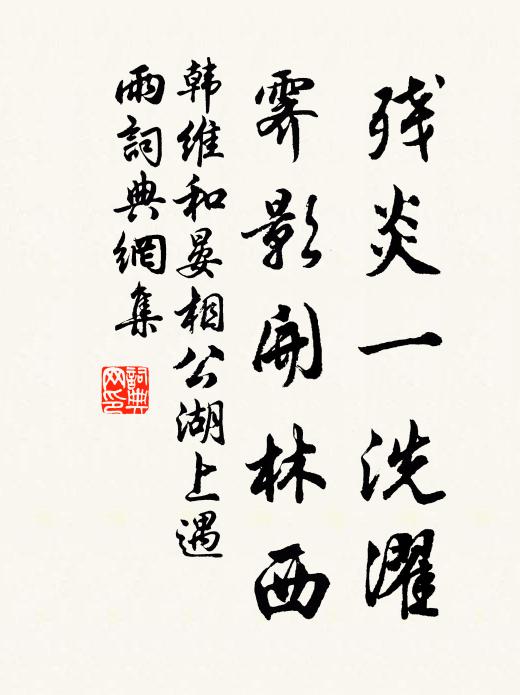 残炎一洗濯
霁影開林西
韩維和晏相公湖上遇
雨詞典網集
詞典网印